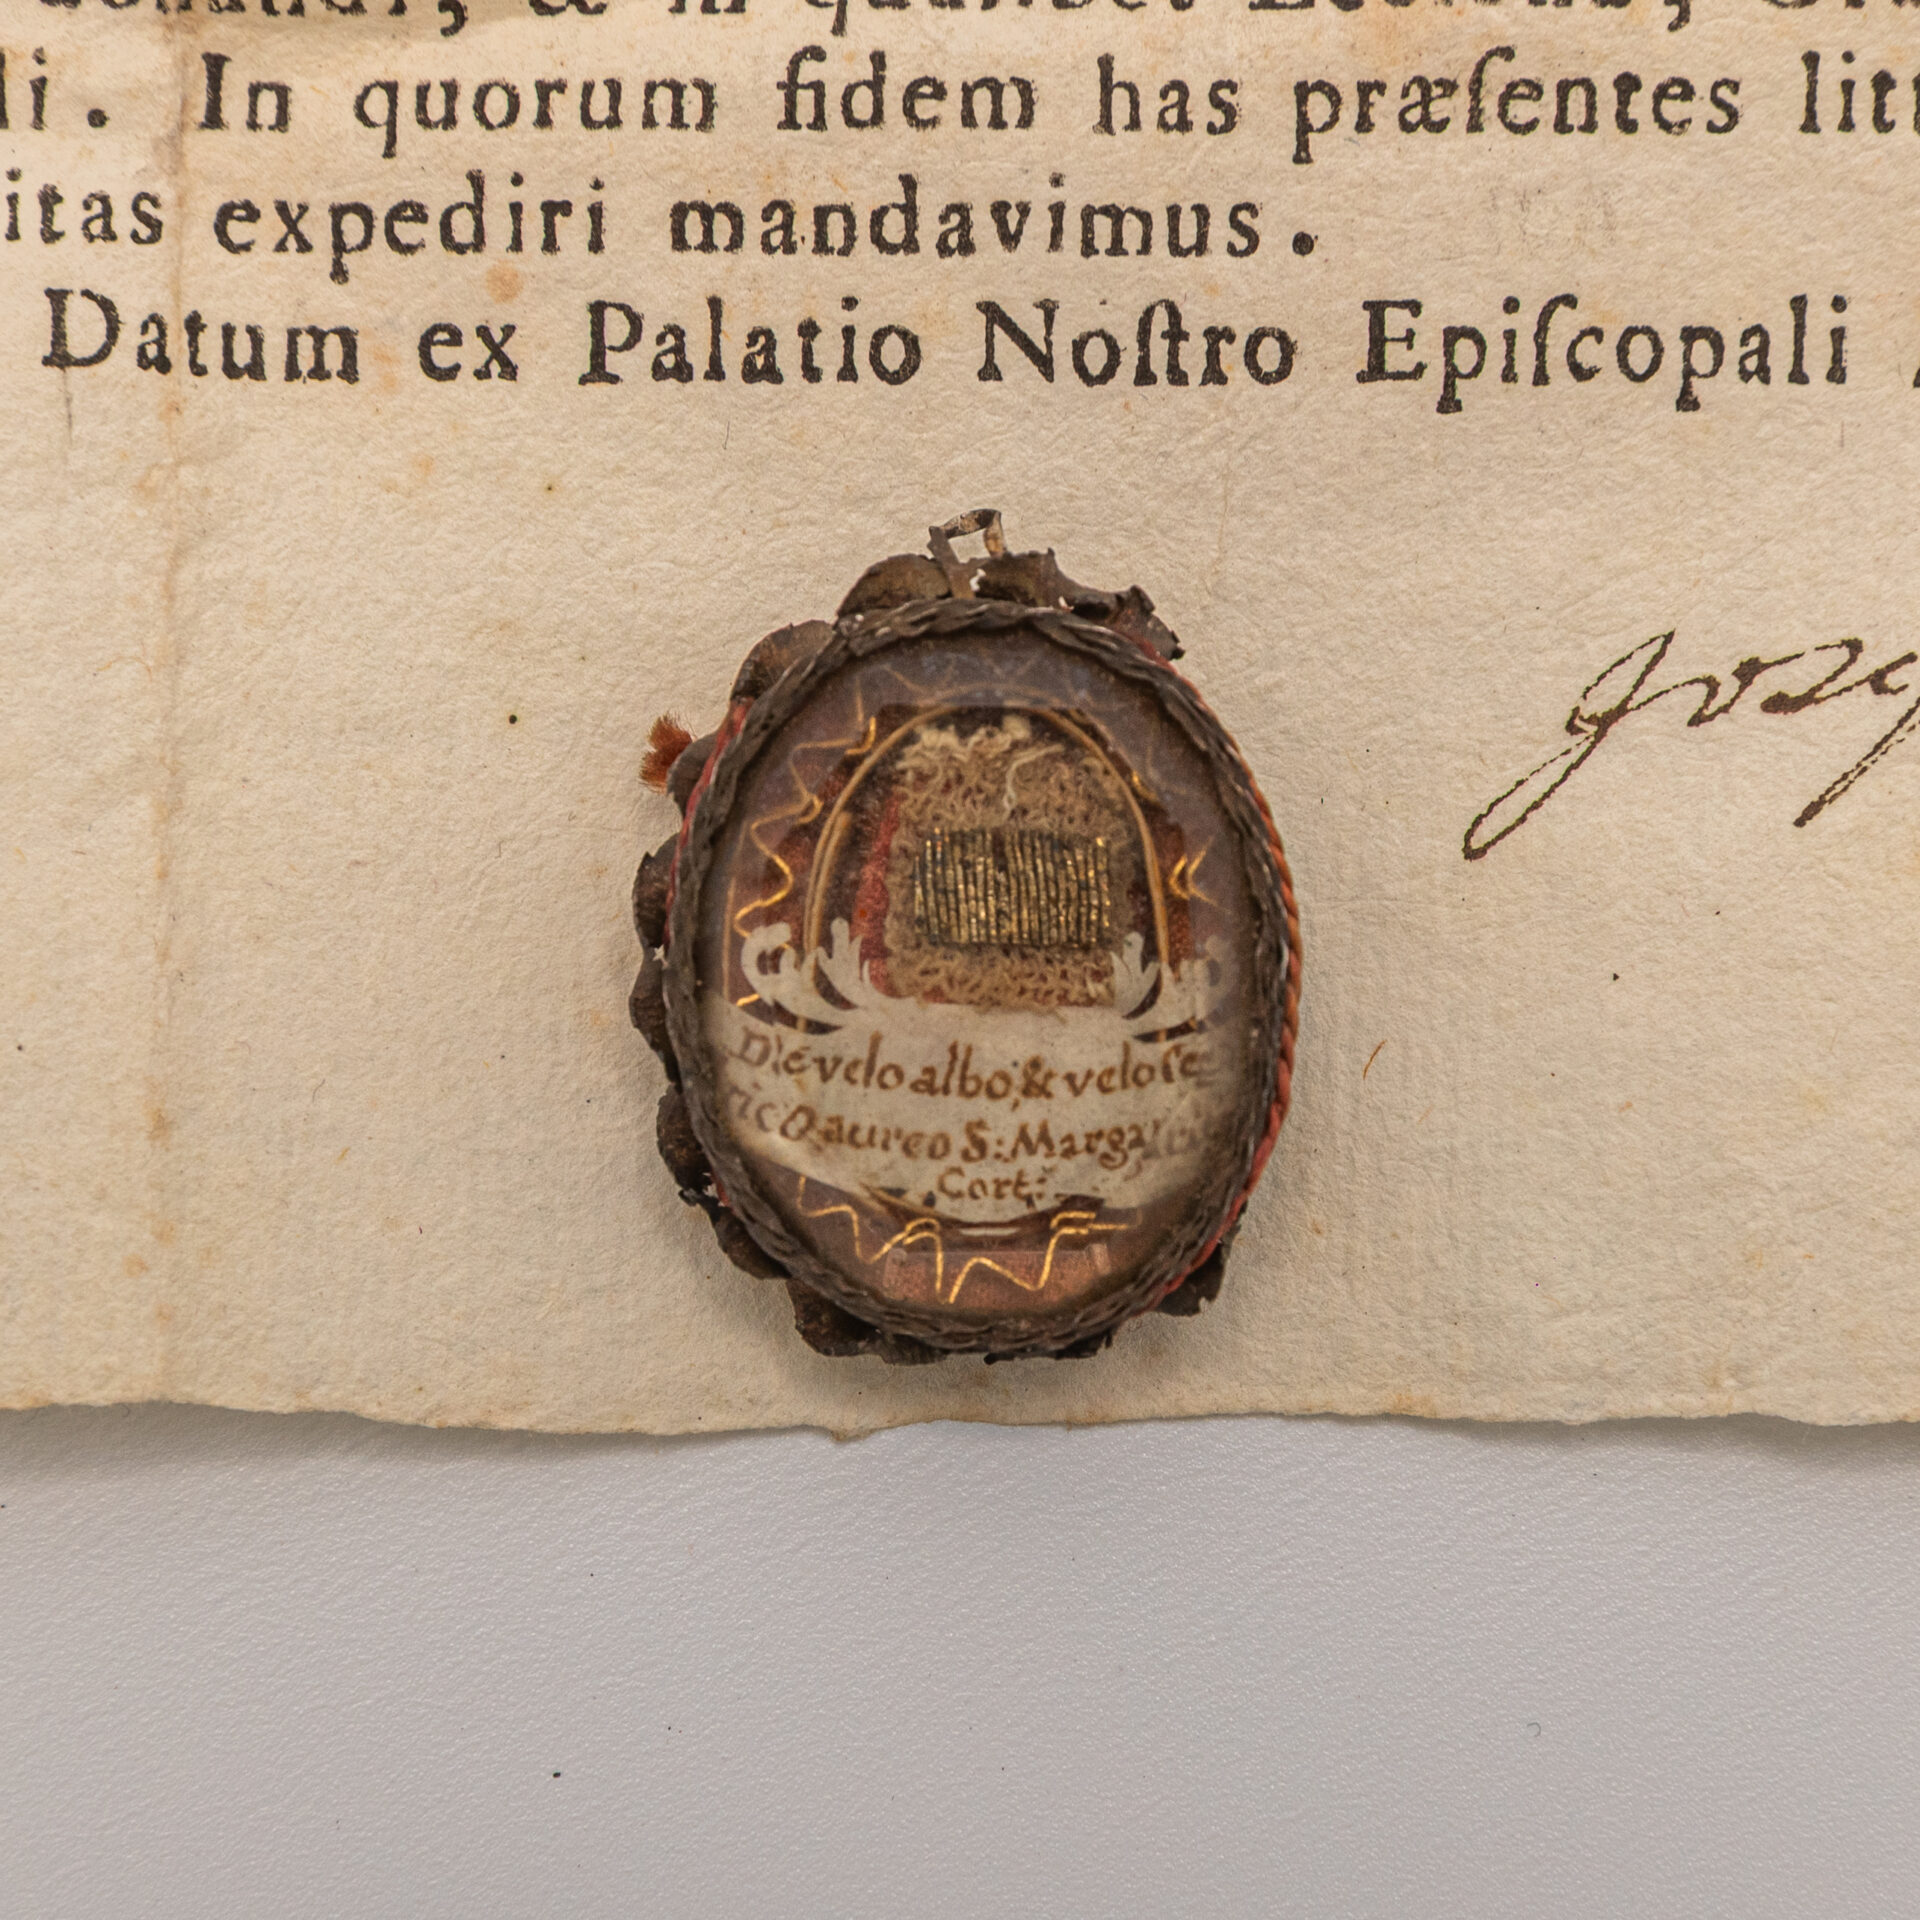 & in
li. In quorum fidem has præſentes litt
itas expediri mandavimus.
Datum ex Palatio Noſtro Epiſcopali
Jose
D/ė velo albo, & velo ſe
ricO aureo S: Marga
Cort: